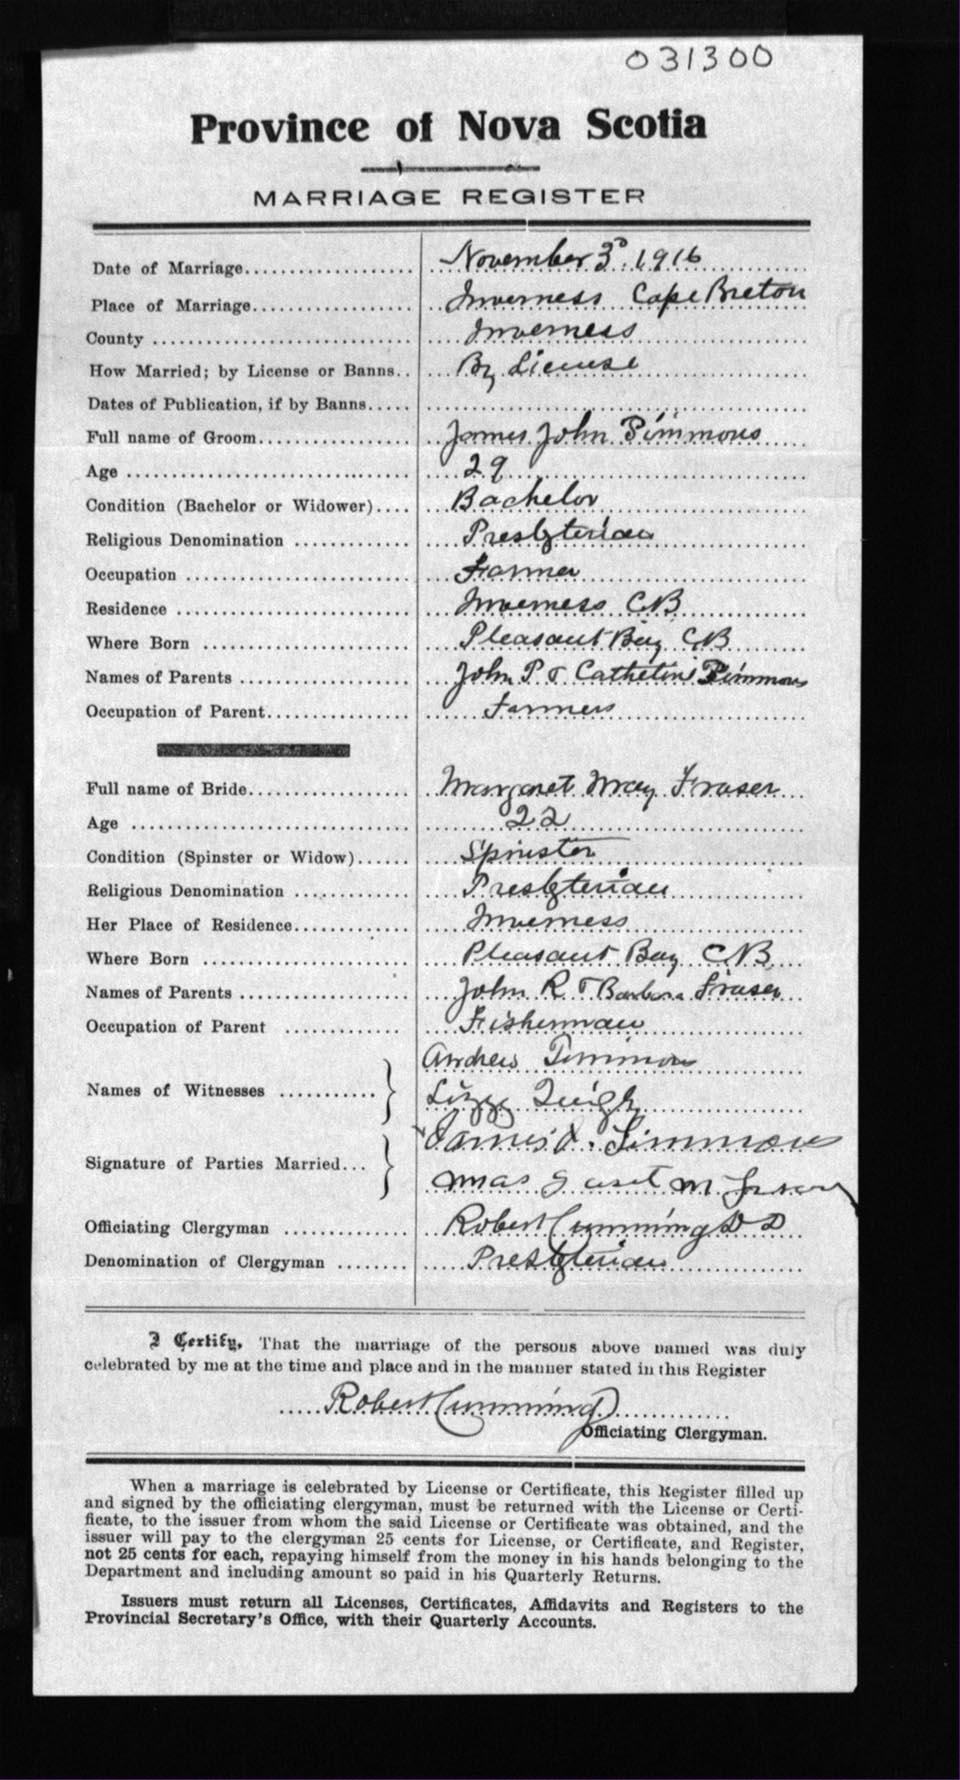 031300
Province of Nova Scotia
MARRIAGE REGISTER
Date of Marriage.................... November 3d 1916
Place of Marriage.................. Inverness Cape Breton
County ............................... Inverness
How Married; by License or Banns.. By License
Dates of Publication, if by Banns.....
Full name of Groom.................. James John Timmons
Age .................................. 29
Condition (Bachelor or Widower).... Bachelor
Religious Denomination ............. Presbyterian
Occupation .......................... Farmer
Residence ........................... Inverness CB
Where Born ......................... Pleasant Bay CB
Names of Parents ................... John P & Catherine Timmons
Occupation of Parent................ Farmers
Full name of Bride................... Margaret May Fraser
Age .................................. 22
Condition (Spinster or Widow)...... Spinster
Religious Denomination ............. Presbyterian
Her Place of Residence.............. Inverness
Where Born ......................... Pleasant Bay CB
Names of Parents ................... John R & Barbara Fraser
Occupation of Parent .............. Fisherman
Andrew Timmons
Names of Witnesses ...........
Lizzy
James J. Timmons
Signature of Parties Married...
Margaret M Fraser
Officiating Clergyman .............. Robert Cumming DD
Denomination of Clergyman ........ Presbyterian
I Certify, That the marriage of the persons above named was duly
celebrated by me at the time and place and in the manner stated in this Register
Robert Cumming
Officiating Clergyman.
When a marriage is celebrated by License or Certificate, this Register filled up
and signed by the officiating clergyman, must be returned with the License or Certi-
ficate, to the issuer from whom the said License or Certificate was obtained, and the
issuer will pay to the clergyman 25 cents for License, or Certificate, and Register,
not 25 cents for each, repaying himself from the money in his hands belonging to the
Department and including amount so paid in his Quarterly Returns.
Issuers must return all Licenses, Certificates, Affidavits and Registers to the
Provincial Secretary's Office, with their Quarterly Accounts.